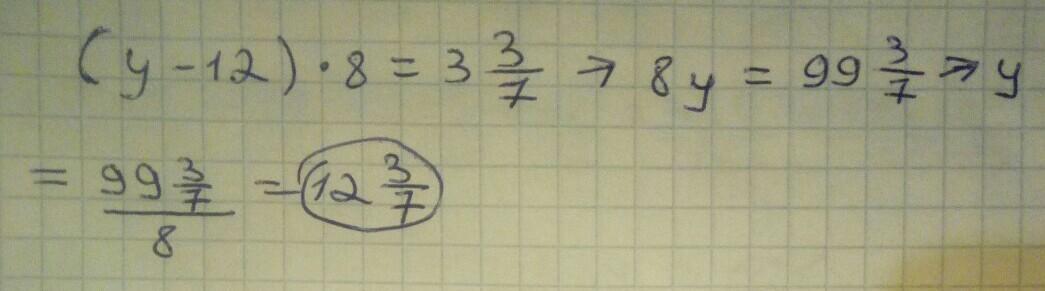 (y - 12) · 8 = 3 3/7 → 8y = 99 3/7 → y
= 99 3/7 / 8 = 12 3/7